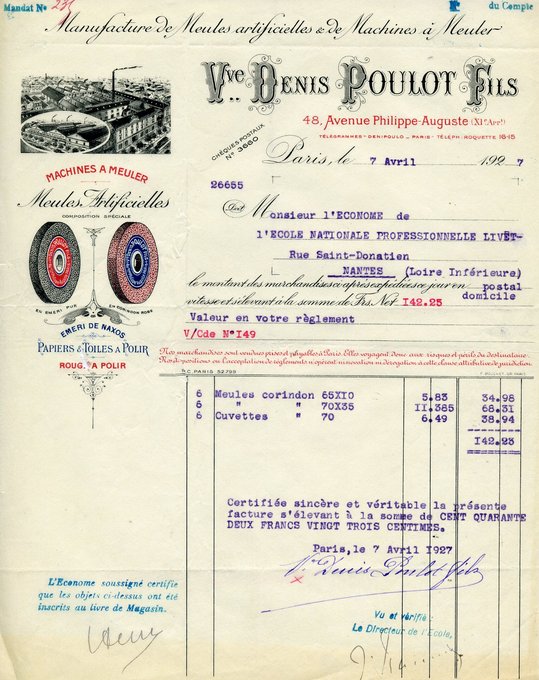 Mandat No 235
du Compte
Manufacture de Meules artificielles & de Machines à Meuler
Vve Denis Poulot Fils
48, Avenue Philippe-Auguste (XIe Arrt)
TÉLÉGRAMMES-DENIPOULO-PARIS-TÉLÉPH. ROQUETTE 18-15
CHÈQUES POSTAUX
No 3660
Paris, le 7 Avril 1927
26655
MACHINES A MEULER
Meules Artificielles
COMPOSITION SPÉCIALE
EN ÉMERI PUR
EN CORINDON ROSE
EMERI DE NAXOS
PAPIERS & TOILES A POLIR
ROUGE A POLIR
Doit
Monsieur l'ECONOME de
l'ECOLE NATIONALE PROFESSIONNELLE LIVET-
Rue Saint-Donatien
NANTES (Loire Inférieure)
le montant des marchandises ci-après expédiées ce jour en postal
vitesse et s'élevant à la somme de Frs Net I42.25 domicile
Valeur en votre règlement
V/Cde N°I49
Nos marchandises sont vendues prises et payables à Paris. Elles voyagent donc aux risques et périls du destinataire.
Nos dispositions ou l'acceptation de règlements n'opèrent ni novation ni dérogation à cette clause attributive de juridiction.
R.C. PARIS 52.799
6 Meules corindon 65XIO 5.83 34.98
6 " " 70X35 II.385 68.31
6 Cuvettes " 70 6.49 38.94
I42.23
Certifiée sincère et véritable la présente
facture s'élevant à la somme de CENT QUARANTE
DEUX FRANCS VINGT TROIS CENTIMES.
Paris, le 7 Avril 1927
Vve Denis Poulot Fils
L'Econome soussigné certifie
que les objets ci-dessus ont été
inscrits au livre de Magasin.
Vu et vérifié :
Le Directeur de l'Ecole,